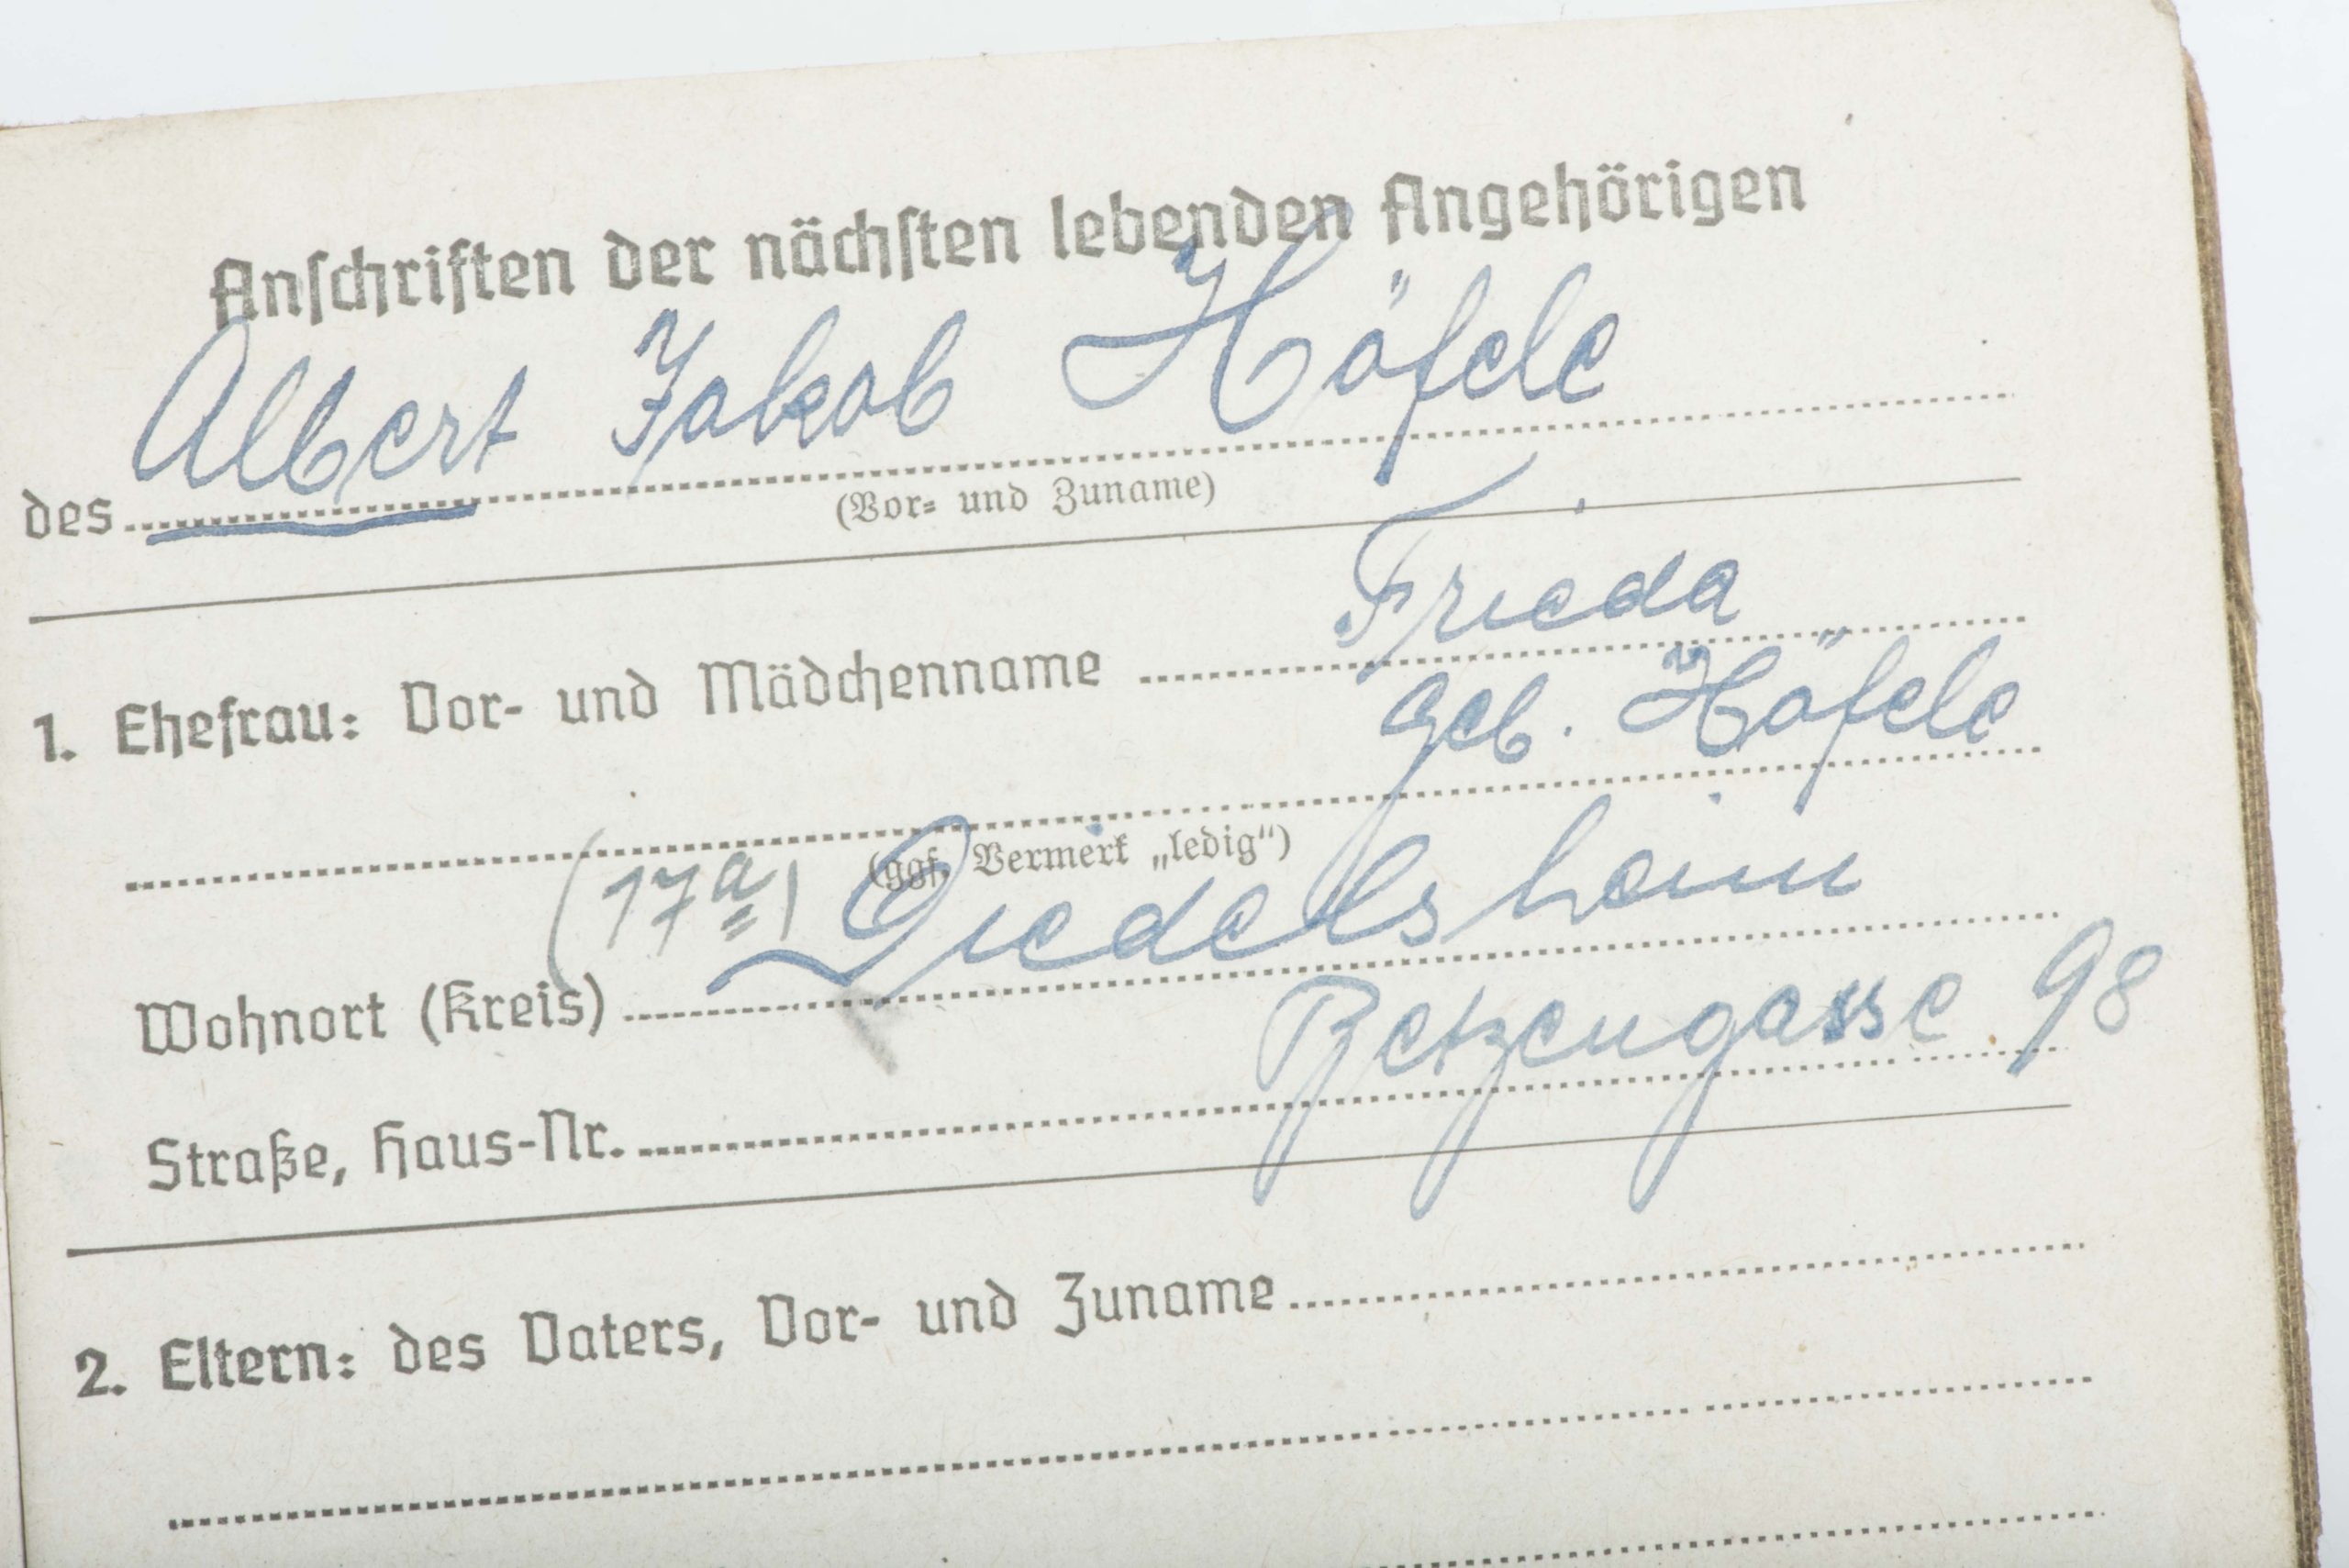 Anschriften der nächsten lebenden Angehörigen
des Albert Jakob Höfele
(Vor- und Zuname)
1. Ehefrau: Vor- und Mädchenname Frieda
geb. Höfele
(ggf. Vermerk „ledig“)
Wohnort (Kreis) (17a) Diedelsheim
Straße, Haus-Nr. Betzengasse 98
2. Eltern: des Vaters, Vor- und Zuname